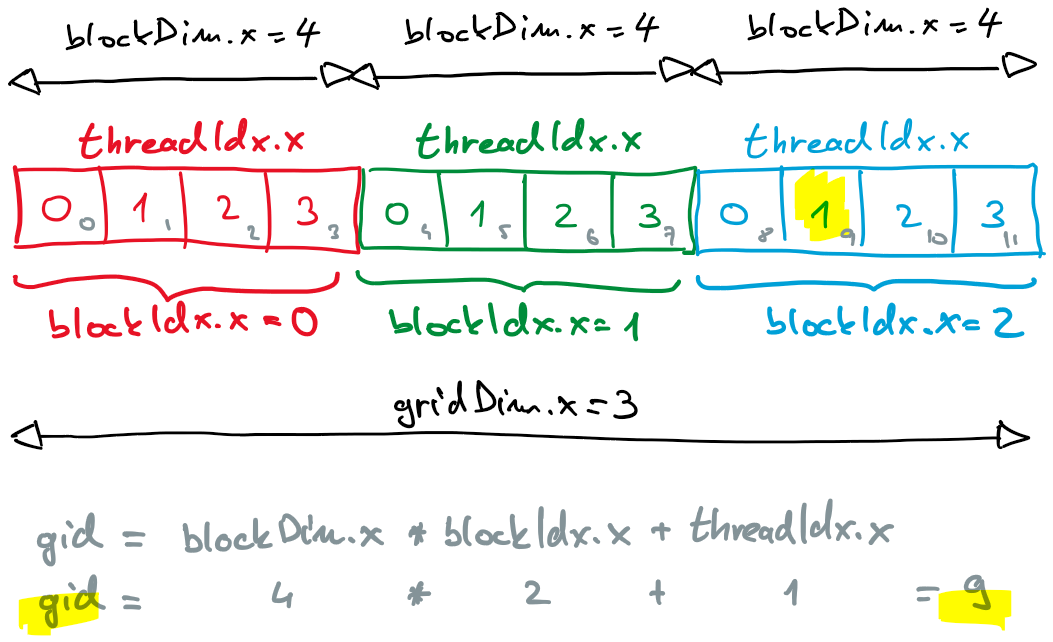 blockDim.x = 4 blockDim.x = 4 blockDim.x = 4
threadIdx.x threadIdx.x threadIdx.x
0 0 1 1 2 2 3 3 0 4 1 5 2 6 3 7 0 8 1 9 2 10 3 11
blockIdx.x = 0 blockIdx.x = 1 blockIdx.x = 2
gridDim.x = 3
gid = blockDim.x * blockIdx.x + threadIdx.x
gid = 4 * 2 + 1 = 9